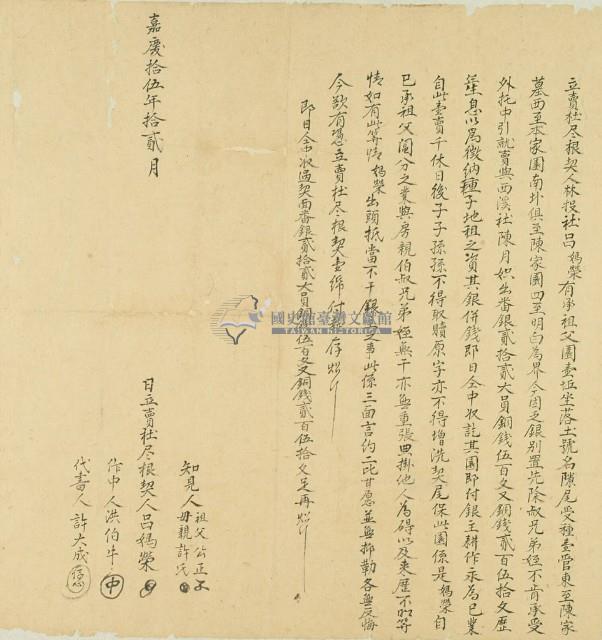 立賣杜尽根契人林投社吕媽榮有承祖父園壹坵坐落土號名隙尾受種壹管東至陳家
墓西至本家園南圤俱至陳家園四至明白為界今因乏銀别置先除叔兄弟姪不肯承受
外托中引就賣與西溪社陳月娘出番銀貳拾貳大員銅錢伍百文又銅錢貳百伍拾文歷
年生息以為徵納種子地租之資其銀併錢即日仝中收訖其園即付銀主耕作永為己業
自此壹賣千休日後子子孫孫不得取贖原字亦不得增洗契尾保此園係是媽榮自
己承祖父鬮分之業與房親伯叔兄弟姪無干亦無重張典掛他人為碍以及来歴不明等
情如有此等情媽榮出頭抵當不干銀主之事此係三面言約二比甘愿並無抑勒各無反悔
今欲有憑立賣杜尽根契壹紙付執存炤
即日仝中收過契面番銀貳拾貳大員銅錢伍百文又銅錢貳百伍拾文足再炤
知見人 祖父公正
母親許氏
日立賣杜尽根契人吕媽榮
作中人洪伯牛 中
代書人許大成
嘉慶拾伍年拾貳月
國史館臺灣文獻館
TAIWAN HISTORICA